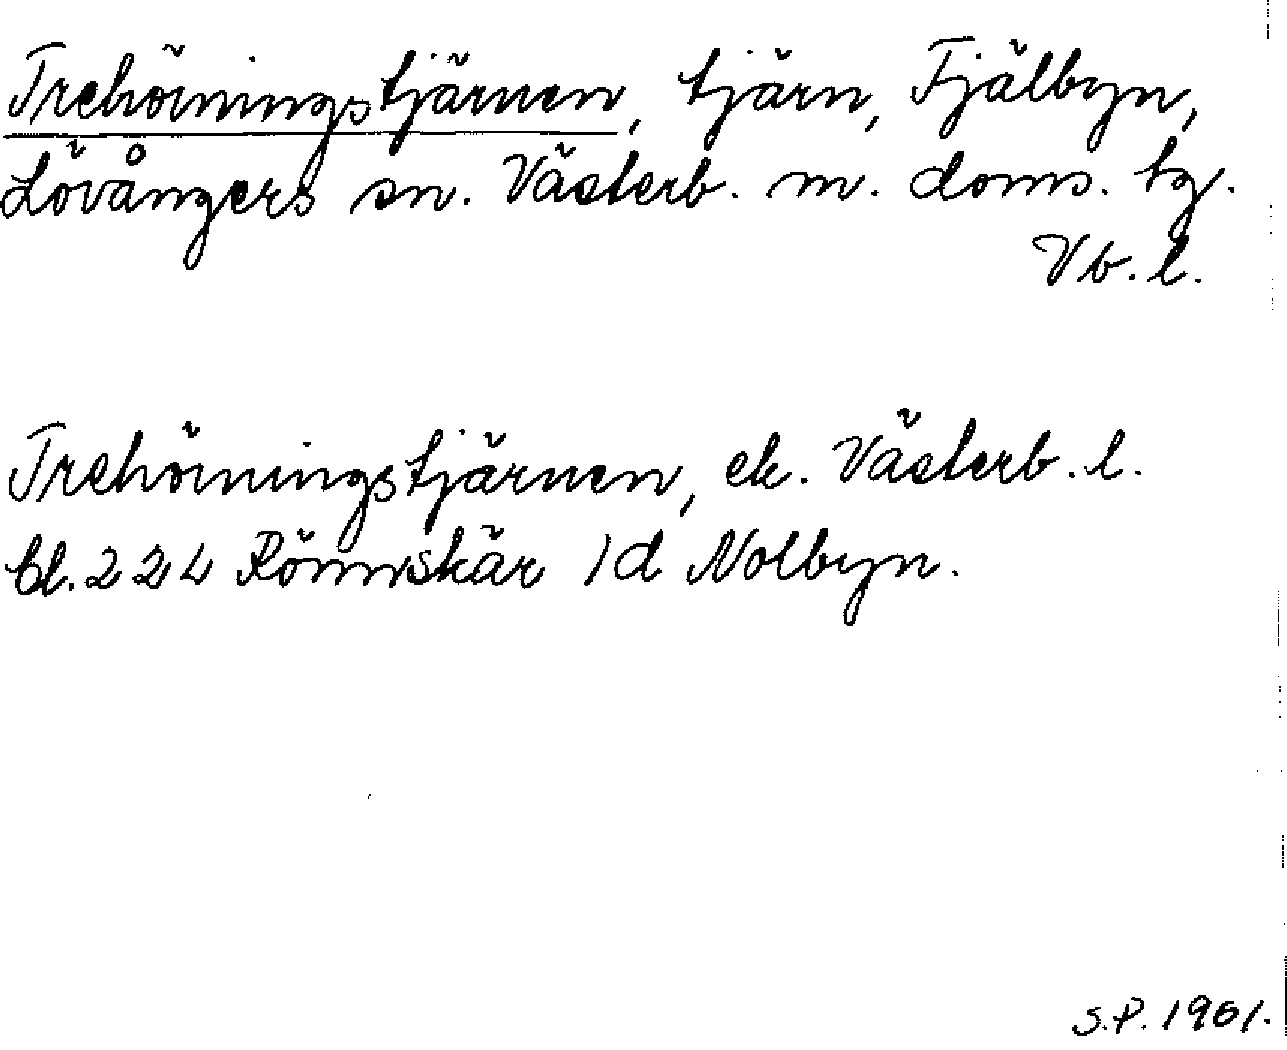 Trehörningstjärnen, tjärn, Fjälbyn,
Lövångers sn. Västerb. m. doms. tg.
Vb. l.
Trehörningstjärnen, ek. Västerb. l.
bl. 224 Rönnskär 1d Nolbyn.
S.P. 1961.